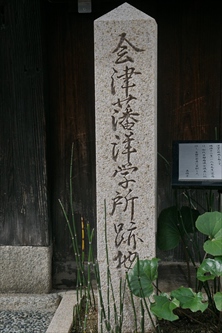 会津藩洋学所跡地